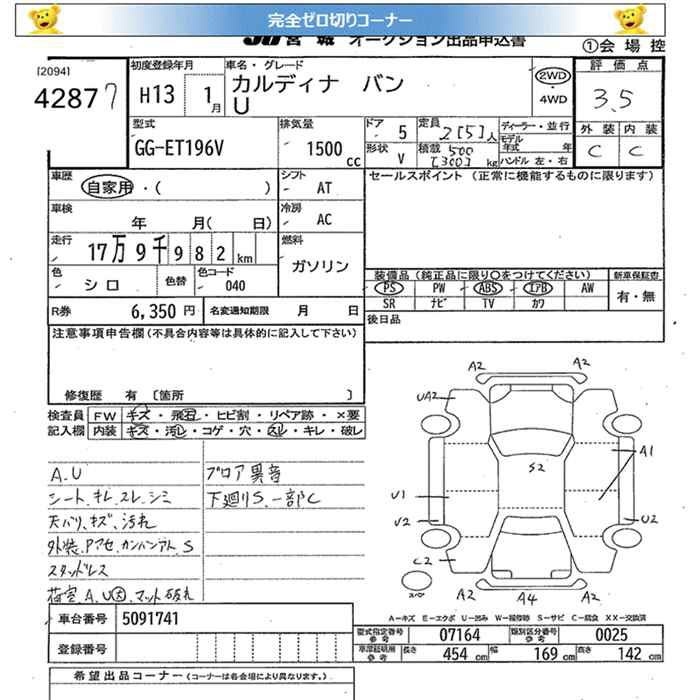 完全ゼロ切りコーナー
JU宮城 オークション出品申込書
①会 場 控
[2094]
42877
初度登録年月
H13 1月
車名・グレード
カルディナ バン
U
2WD
・
4WD
評 価 点
3.5
外 装 内 装
C C
型式
GG-ET196V
排気量
1500 cc
ドア 5
形状 V
定員 2[5]人
積載 500 [300] kg
ディーラー・並行
モデル年式 年
ハンドル 左・右
車歴
自家用・( )
シフト AT
セールスポイント (正常に機能するものに限ります)
車検
年 月( 日)
冷房 AC
走行
17万9千982km
燃料
ガソリン
色
シロ
色替
色コード
040
装備品 (純正品に限り○をつけてください)
PS PW ABS エアB AW
SR ナビ TV カワ
新車保証書
有・無
R券 6,350 円
名変通知期限 月 日
後日品
注意事項申告欄(不具合内容等は具体的に記入して下さい)
修復歴 有 〔箇所 〕
検査員
記入欄
FW キズ・飛石・ヒビ割・リペア跡・×要
内装 キズ・汚レ・コゲ・穴・スレ・キレ・破レ
A.U
シート、キレ、スレ、シミ
天バリ、キズ、汚れ
外装、Pアセ、カンバンアト、S
スタッドレス
荷室、A、U大、マット破れ
ブロア異音
下廻りS、一部C
A2
A2
UA2
A1
S2
U1
U2
U2
C2
A2
A4
A2
スペア
A＝キズ E＝エクボ U＝凹み W＝補修跡 S＝サビ C＝腐食 XX＝交換済
車台番号 5091741
登録番号
型式指定番号 参考 07164
類別区分番号 参考 0025
車庫証明用 参考 長さ 454 cm 幅 169 cm 高さ 142 cm
希望出品コーナー (コーナーは各会場により異なります。)